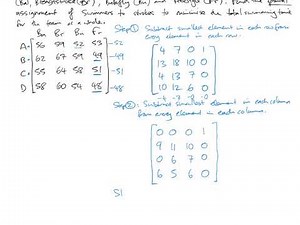 assignment of swimmers to strokes to minimise the total swimming time
for the team of strokes.
Step ① : Subtract smallest element in each row from
every element in each row.
Ba Br Bu Fr
A· 56 59 52 53 -52
B· 62 67 59 49 -49
C· 55 64 58 51 -51
D 58 60 54 48 -48
4 7 0 1
13 18 10 0
4 13 7 0
10 12 6 0
-4 -7 -0 -0
Step ② : Subtract smallest element in each column
from every element in each column.
0 0 0 1
9 11 10 0
0 6 7 0
6 5 6 0
St